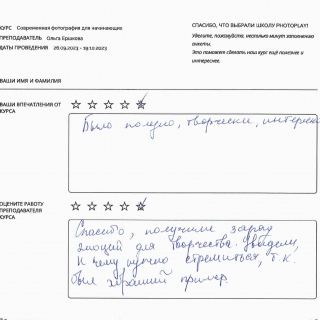 КУРС Современная фотография для начинающих
ПРЕПОДАВАТЕЛЬ Ольга Ершкова
ДАТЫ ПРОВЕДЕНИЯ 26.09.2023 - 19.10.2023
СПАСИБО, ЧТО ВЫБРАЛИ ШКОЛУ PHOTOPLAY!
Уделите, пожалуйста, несколько минут заполнению
анкеты.
Это поможет сделать наш курс ещё полезнее и
интереснее.
ВАШИ ИМЯ И ФАМИЛИЯ
ВАШИ ВПЕЧАТЛЕНИЯ ОТ
КУРСА
Было полезно, творчески, интересн
ОЦЕНИТЕ РАБОТУ
ПРЕПОДАВАТЕЛЯ
КУРСА
Спасибо, получили заряд
эмоций для творчества. Увидели,
к чему нужно стремиться, т.к.
был хороший пример.